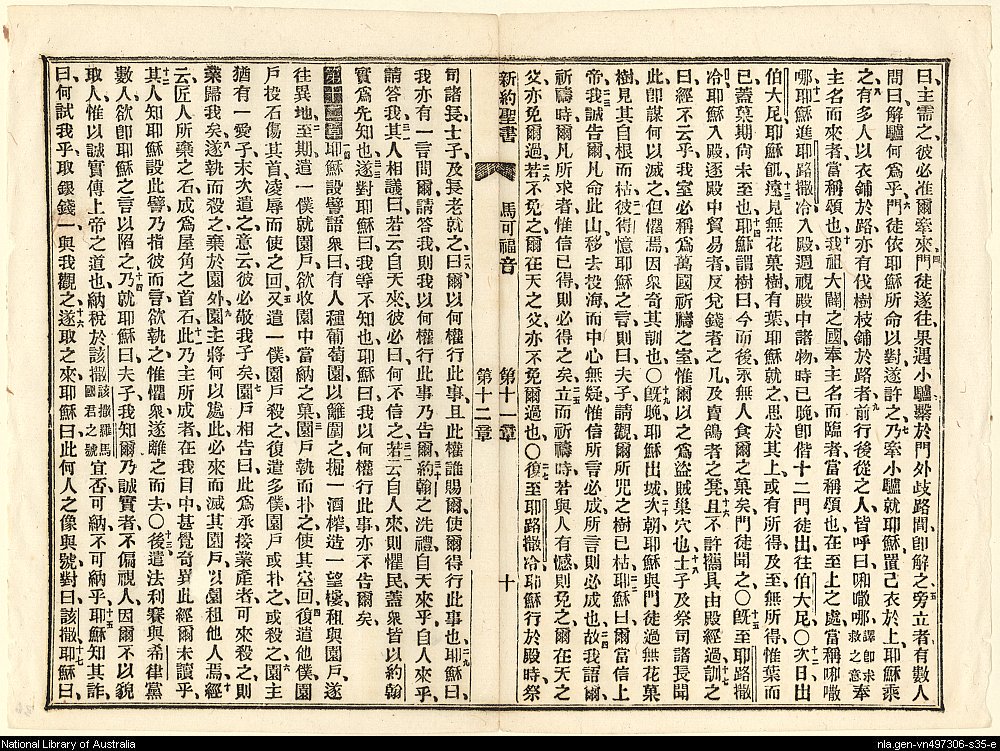 曰、主需之、彼必准爾牽來、門徒遂往、果遇小驢繫於門外歧路間、卽解之、旁立者有數人
問曰、解驢何爲乎、門徒依耶穌所命以對、遂許之、乃牽小驢就耶穌、置己衣於上、耶穌乘
之、有多人以衣鋪於路、亦有伐樹枝鋪於路者、前行後從之人皆呼曰、哪譯卽求救之意奉
主名而來者、當稱頌也、我祖大闢之國、奉主名而臨者、當稱頌也、在至上之處、當稱
哪、耶穌進耶路撒冷、入殿、週視殿中諸物、時已晚、卽偕十二門徒出往伯大尼、○次日出
伯大尼、耶穌飢、遠見無花菓樹有葉、耶穌就之、思於其上或有所得、及至無所得、惟葉而
已、蓋菓期尚未至也、耶穌謂樹曰、今而後永無人食爾之菓矣、門徒聞之、○旣至耶路撒
冷、耶穌入殿、逐殿中貿易者、反兌錢者之几、及賣鴿者之凳、且不許攜具由殿經過、訓之
曰、經不云乎、我室必稱爲萬國祈禱之室、惟爾以之爲盜賊巢穴也、士子及祭司諸長聞
此、卽謀何以滅之、但懼焉、因衆奇其訓也、○旣晚、耶穌出城、次朝、耶穌與門徒過無花菓
樹、見其自根而枯、彼得憶耶穌之言、則曰、夫子、請觀爾所咒之樹已枯、耶穌曰、爾當信上
帝、我誠告爾、凡命此山移去投海、而中心無疑、惟信所言必成、所言則必成也、故我語爾、
祈禱時、凡所求者、惟信已得、則必得之矣、立而祈禱時、若與人有憾、則免之、爾在天之
父、亦免爾過、若不免之、爾在天之父、亦不免爾過也、○復至耶路撒冷、耶穌行於殿時、祭
新約聖書 馬可福音 第十一章 第十二章 十
司諸長士子及長老就之曰、爾以何權行此事、且此權誰賜爾、使爾得行此事也、耶穌曰、
我亦有一言問爾、請答我、則我以何權行此事、乃告爾、約翰之洗禮自天來乎、自人來乎、
請答我、其人相議曰、若云自天來、彼必曰、何不信之、若云自人來、則懼民、蓋衆皆以約翰
實爲先知也、遂對耶穌曰、我等不知也、耶穌曰、我以何權行此事、亦不告爾矣、
第十二章耶穌設譬語衆曰、有人種葡萄園、以籬圍之、掘一酒榨、造一望樓、租與園戶、遂
往異地、至期、遣一僕就園戶、欲收園中當納之菓、園戶執而扑之、使其空回、復遣他僕、園
戶投石傷其首、凌辱而使之回、又遣一僕、園戶殺之、復遣多僕、園戶或扑之、或殺之、園主
猶有一愛子、末次遣之、意云、彼必敬我子矣、園戶相告曰、此爲承接業產者、可來殺之、則
業歸我矣、遂執而殺之、棄於園外、園主將何以處此、必來而滅其園戶、以園租他人焉、經
云、匠人所棄之石、成爲屋角之首石、此乃主所成者、在我目中甚覺奇異、此經爾未讀乎、
其人知耶穌設此譬、乃指彼而言、欲執之、惟懼衆、遂離之而去、○後遣法利賽與希律黨
數人、欲卽耶穌之言以陷之、乃就耶穌曰、夫子、我知爾乃誠實者、不偏視人、因爾不以貌
取人、惟以誠實傳上帝之道也、納稅於該撒該撒羅馬國君之號宜否、可納、不可納乎、耶穌知其詐、
曰、何試我乎、取銀錢一與我觀之、遂取之來、耶穌曰、此何人之像與號、對曰、該撒、耶穌曰、
National Library of Australia
nla.gen-vn497306-s35-e